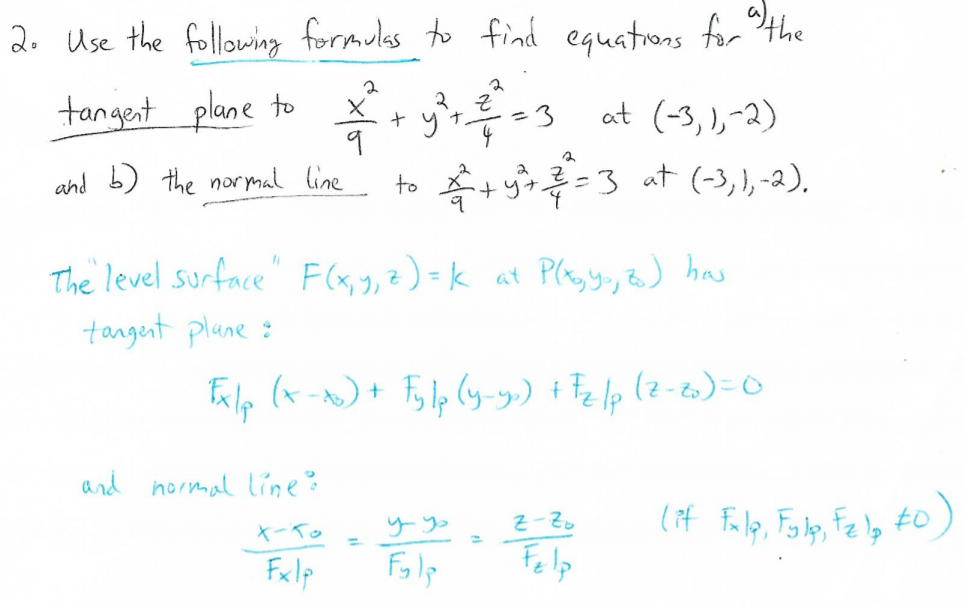 2. Use the following formulas to find equations for a) the
tangent plane to x²/9 + y² + z²/4 = 3 at (-3, 1, -2)
and b) the normal line to x²/9 + y² + z²/4 = 3 at (-3, 1, -2).
The "level surface" F(x, y, z) = k at P(x₀, y₀, z₀) has
tangent plane :
Fx|p (x - x₀) + Fy|p (y - y₀) + Fz|p (z - z₀) = 0
and normal line :
(x - x₀)/Fx|p = (y - y₀)/Fy|p = (z - z₀)/Fz|p (if Fx|p, Fy|p, Fz|p ≠ 0)